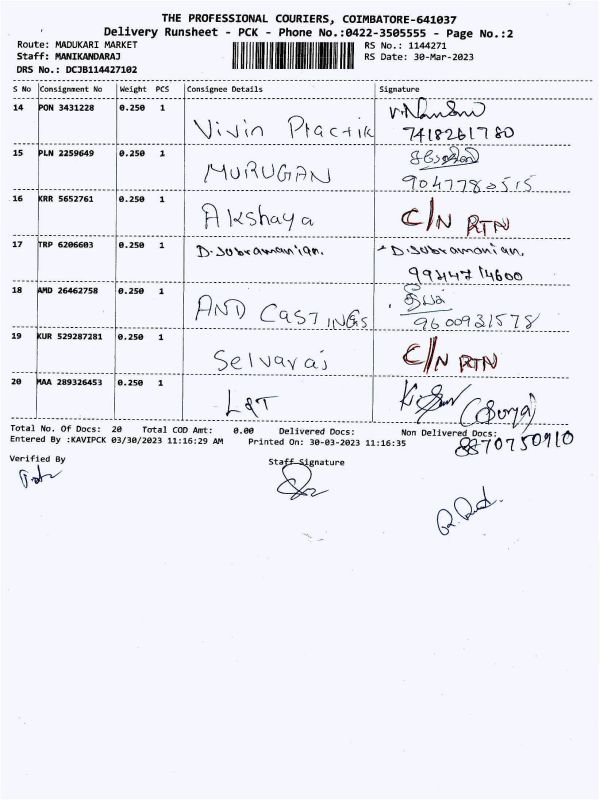 THE PROFESSIONAL COURIERS, COIMBATORE-641037
Delivery Runsheet - PCK - Phone No.:0422-3505555 - Page No.:2
Route: MADUKARI MARKET RS No.: 1144271
Staff: MANIKANDARAJ RS Date: 30-Mar-2023
DRS No.: DCJB114427102
S No Consignment No Weight PCS Consignee Details Signature
14 PON 3431228 0.250 1 Vivin Practik
7418261780
15 PLN 2259649 0.250 1 MURUGAN
9047780515
16 KRR 5652761 0.250 1 Akshaya C/N RTN
17 TRP 6206603 0.250 1 D. Subramanian. D. Subramanian.
9944714600
18 AMD 26462758 0.250 1 AND CASTINGS
9600931578
19 KUR 529287281 0.250 1 Selvaraj C/N RTN
20 MAA 289326453 0.250 1 L&T (Surya)
Total No. Of Docs: 20 Total COD Amt: 0.00 Delivered Docs: Non Delivered Docs:
8870750910
Entered By :KAVIPCK 03/30/2023 11:16:29 AM Printed On: 30-03-2023 11:16:35
Verified By Staff Signature